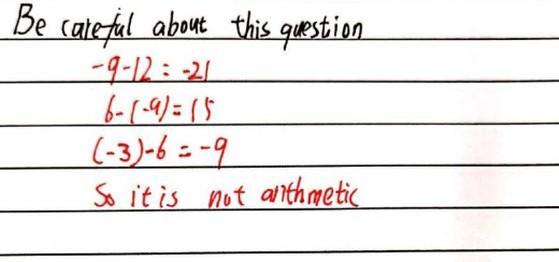 Be careful about this question
-9-12 = -21
6-(-9)=15
(-3)-6 = -9
So it is not arithmetic